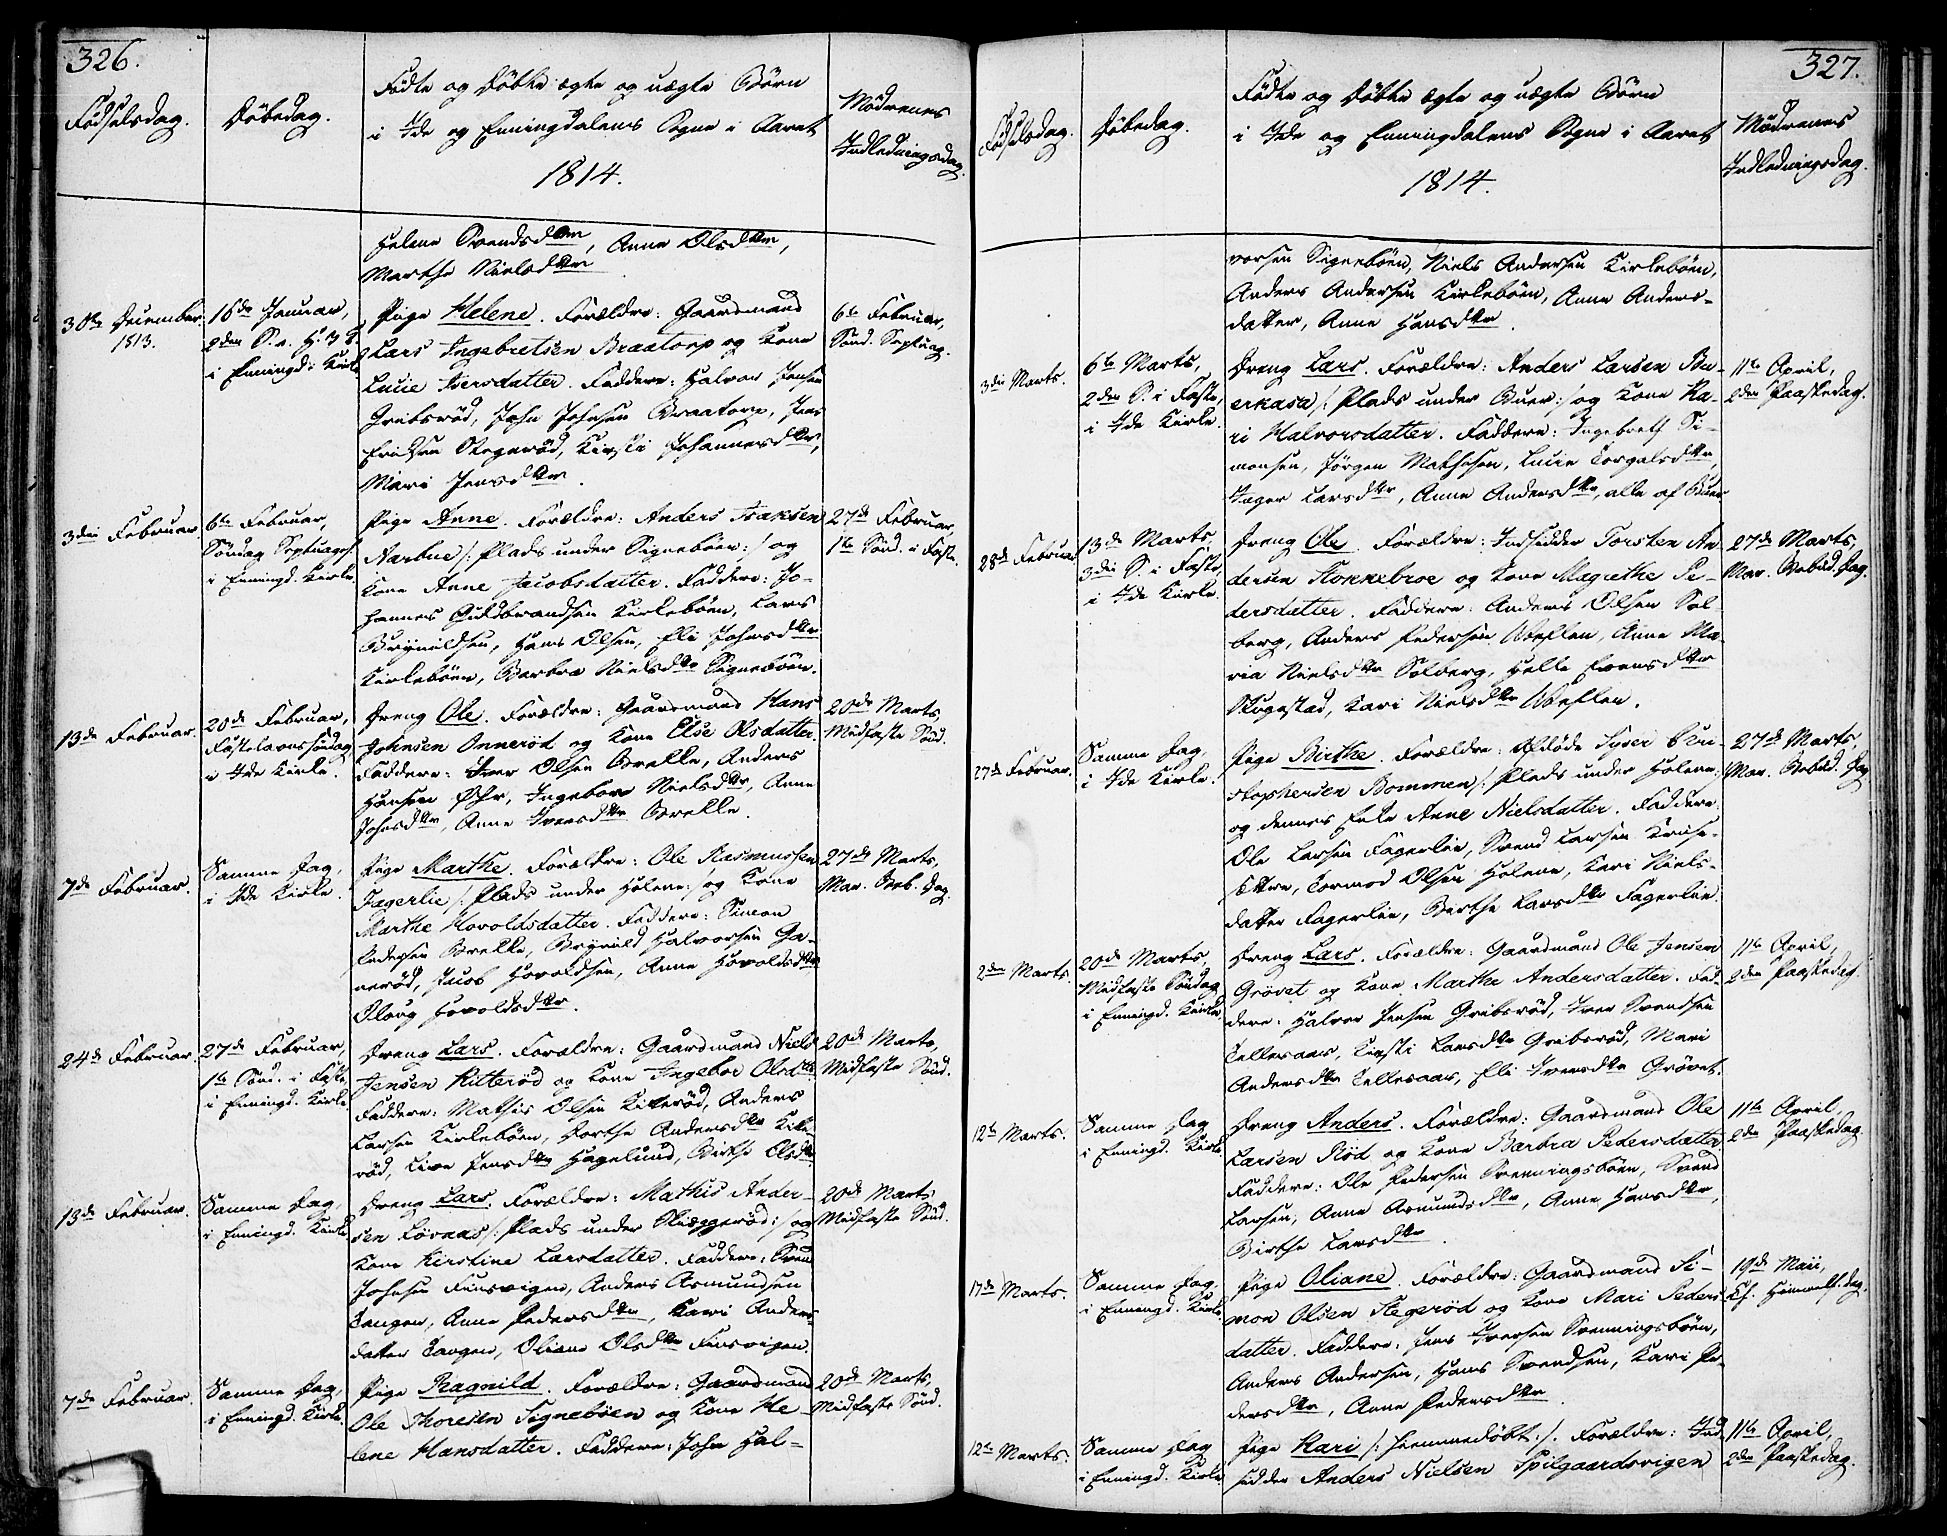 326.
Födselsdag.
Döbedag.
Födte og döbte ægte og uægte Börn
i Ide og Enningdalens Sogne i Aaret
1814.
Mödrenes
Indledningsdag.
Helene Svendsdtter, Anne Olsdtter,
Marthe Nielsdtter
30te December
1813.
16de Januar,
2den S. e. H. 3 K.
i Enningd. Kirke
Pige Helene. Forældre: Gaardmand
Lars Ingebretsen Braatorp og Kone
Lucie Iversdatter. Faddere: Halvor Jensen
Gribsröd, John Johnsen Braatorp, Jens
Erichsen Stegeröd, Kirsti Johannesdtter,
Mari Jensdtter.
6te Februar,
Sönd. Septuag.
3die Februar
6te Februar,
Söndag Septuages.
i Enningd. Kirke
Pige Anne. Forældre: Anders Isaksen
Aarbue /: Plads under Signeböen :/ og
Kone Anne Jacobsdatter. Faddere: Jo-
hannes Guldbrandsen Kirkeböen, Lars
Brynildsen, Hans Olsen, Eli Johnsdtter
Kirkeböen, Barbra Nielsdtter Signeböen.
27de Februar,
1te Sönd. i Faste.
13de Februar.
20de Februar,
Fastelavnssöndag
i Ide Kirke.
Dreng Ole. Forældre: Gaardmand Hans
Johnsen Onneröd og Kone Else Olsdatter.
Faddere: Iver Olsen Brekke, Anders
Hansen Öhr, Ingebor Nielsdtter, Anne
Johnsdtter, Anne Iversdtter Brekke.
20de Marts
Midfaste Sönd.
7de Februar.
Samme Dag,
i Ide Kirke.
Pige Marthe. Forældre: Ole Rasmussen
Fagerlie /: Plads under Holene :/ og Kone
Marthe Hovoldsdatter. Faddere: Simon
Pedersen Brekke, Brynild Halvorsen Ga-
neröd, Jacob Hovoldsen, Anne Hovoldsdtter
Oloug Hovoldsdtter.
27de Marts,
Mar. Beb. Dag
24de Februar
27de Februar,
1te Sönd. i Faste,
i Enningd. Kirke
Dreng Lars. Forældre: Gaardmand Niels
Jensen Kitteröd og Kone Ingebor Olsdtter
Faddere: Mathis Olsen Kitteröd, Anders
Larsen Kirkeböen, Dorthe Andersdtter Kitte-
röd, Live Jensdtter Hagelund, Birthe Olsdtter
20de Marts,
Midfaste Sönd.
13de Februar.
Samme Dag,
i Enningd. Kirke
Dreng Lars. Forældre: Mathis Ander-
sen Lövaas /: Plads under Skieggeröd :/ og
Kone Kirstine Larsdatter. Faddere: Svend
Johnsen Finsvigen, Anders Asmundsen
Tangen, Anne Pedersdtter, Kari Anders-
datter Tangen, Oliane Olsdtter Finsvigen.
20de Marts,
Midfaste Sönd.
7de Februar.
Samme Dag,
i Enningd. Kirke.
Pige Ragnild. Forældre: Gaardmand
Ole Thoresen Signeböen og Kone He-
lene Hansdatter. Faddere: John Hal-
20de Marts,
Midfaste Sönd.
327.
Födselsdag.
Döbedag.
Födte og döbte ægte og uægte Börn
i Ide og Enningdalens Sogne i Aaret
1814.
Mödrenes
Indledningsdag.
vorsen Signeböen, Niels Andersen Kirkeböen,
Anders Andersen Kirkeböen, Anne Anders-
datter, Anne Hansdtter.
3die Marts.
6te Marts,
2den S. i Faste,
i Ide Kirke.
Dreng Lars. Forældre: Anders Larsen Bu-
erkasa /: Plads under Buer :/ og Kone Ka-
ri Halvorsdatter. Faddere: Ingebreth Si-
monsen, Jörgen Mathesen, Lucie Torgalsdtter,
Inger Larsdtter, Anne Andersdtter, alle af Buer
11te April,
2den Paaskedag.
28de Februar
13de Marts,
3die S. i Faste,
i Ide Kirke.
Dreng Ole. Forældre: Indsidder Torsten An-
dersen Stokkebroe og Kone Magrethe Pe-
dersdatter. Faddere: Anders Olsen Sol-
berg, Anders Pedersen Weflen, Anne Ma-
ria Nielsdtter Solberg, Helle Evensdtter
Skogestad, Kari Nielsdtter Weflen.
27de Marts,
Mar. Bebud. Dag.
27de Februar.
Samme Dag,
i Ide Kirke.
Pige Birthe. Forældre: Afdöde Syver Chri-
stophersen Bommen /: Plads under Holene :/
og dennes Enke Anne Nielsdatter. Faddere:
Ole Larsen Fagerlien, Svend Larsen Kruse-
, Tormod Olsen Holene, Kari Niels-
datter Fagerlien, Birthe Larsdtter Fagerlien.
27de Marts,
Mar. Bebud. Dag
2den Marts.
20de Marts,
Midfaste Söndag
i Enningd. Kirke
Dreng Lars. Forældre: Gaardmand Ole Jensen
Grövet og Kone Marthe Andersdatter. Fad-
dere: Halvor Jensen Gribsröd, Iver Svendsen
Tellesaas, Kirsti Larsdtter Gribsröd, Mari
Andersdtter Tellesaas, Elli Iversdtter Grövet.
11te April,
2den Paaskedag.
12te Marts.
Samme Dag
i Enningd. Kirke
Dreng Anders. Forældre: Gaardmand Ole
Larsen Röd og Kone Barbra Pedersdatter
Faddere: Ole Pedersen Svenningsböen, Svend
Larsen, Anne Asmundsdtter, Anne Hansdtter,
Birthe Larsdtter.
11te April,
2den Paaskedag.
17de Marts.
Samme Dag.
i Enningd. Kirke
Pige Oliane. Forældre: Gaardmand Si-
mon Olsen Stegeröd og Kone Mari Peders-
datter. Faddere: Jens Iversen Svenningsböen,
Anders Andersen, Hans Svendsen, Kari Pe-
dersdtter, Anne Pedersdtter.
19de Maii,
Ch. Himmelf. dag.
12te Marts.
Samme Dag
i Enningd. Kirke
Pige Kari /: hiemmedöbt :/. Forældre: Ind-
sidder Anders Nielsen Spilgaardsvigen
11te April,
2den Paaskedag.